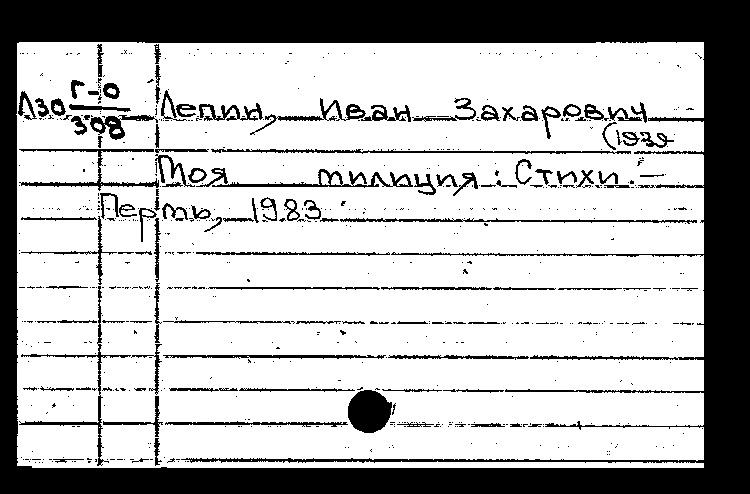 Л30 Г-0/308 Лепин, Иван Захарович
(1939
Моя милиция: Стихи. —
Пермь, 1983.